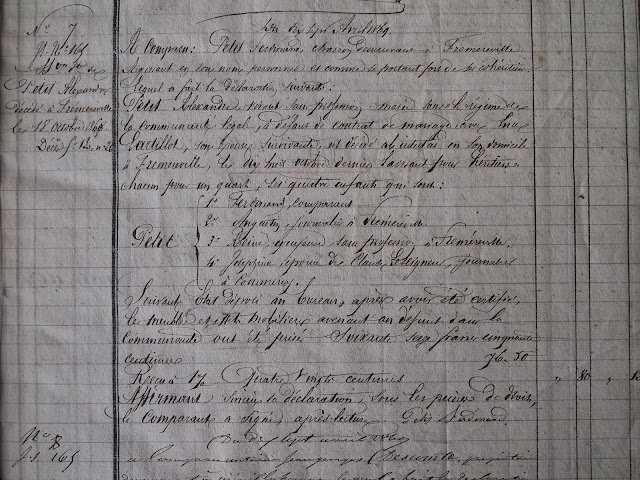 N° 7
N. N° 165
Petit Alexandre
Décédé à Frémeréville
Le 18 octobre 1868
Du dix sept Avril 1869.
A Comparu: Petit Ferdinand, charron, demeurant à Fremereville
Agissant en son nom personnel et comme se portant fort de ses cohéritiers
Lequel a fait la déclaration suivante:
Petit Alexandre, vivant sans profession, marié sous le régime de
la Communauté légale, à défaut de contrat de mariage avec
son épouse survivante, est décédé ab intestat en son domicile
à Fremereville, le dix huit octobre dernier laissant pour héritiers
chacun pour un quart, ses quatre enfants qui sont:
1° Ferdinand, comparant
2° Augustin, à Frémeréville
Petit
3° Reine, sans profession, à Frémeréville.
4° Joséphine, épouse de Claude Leseigneur, journalier
à Commercy.
Suivant État déposé au bureau, après avoir été certifié,
les meubles et effets mobiliers avenant au défunt dans la
Communauté ont été prisés Soixante seize francs cinquante
centimes 76.50
Reçu à 1% Quatre vingts centimes
Affirmant Sincère la déclaration, sous les peines de droit,
le Comparant a signé après lecture.
N° 8
165
Du dix sept avril 1869